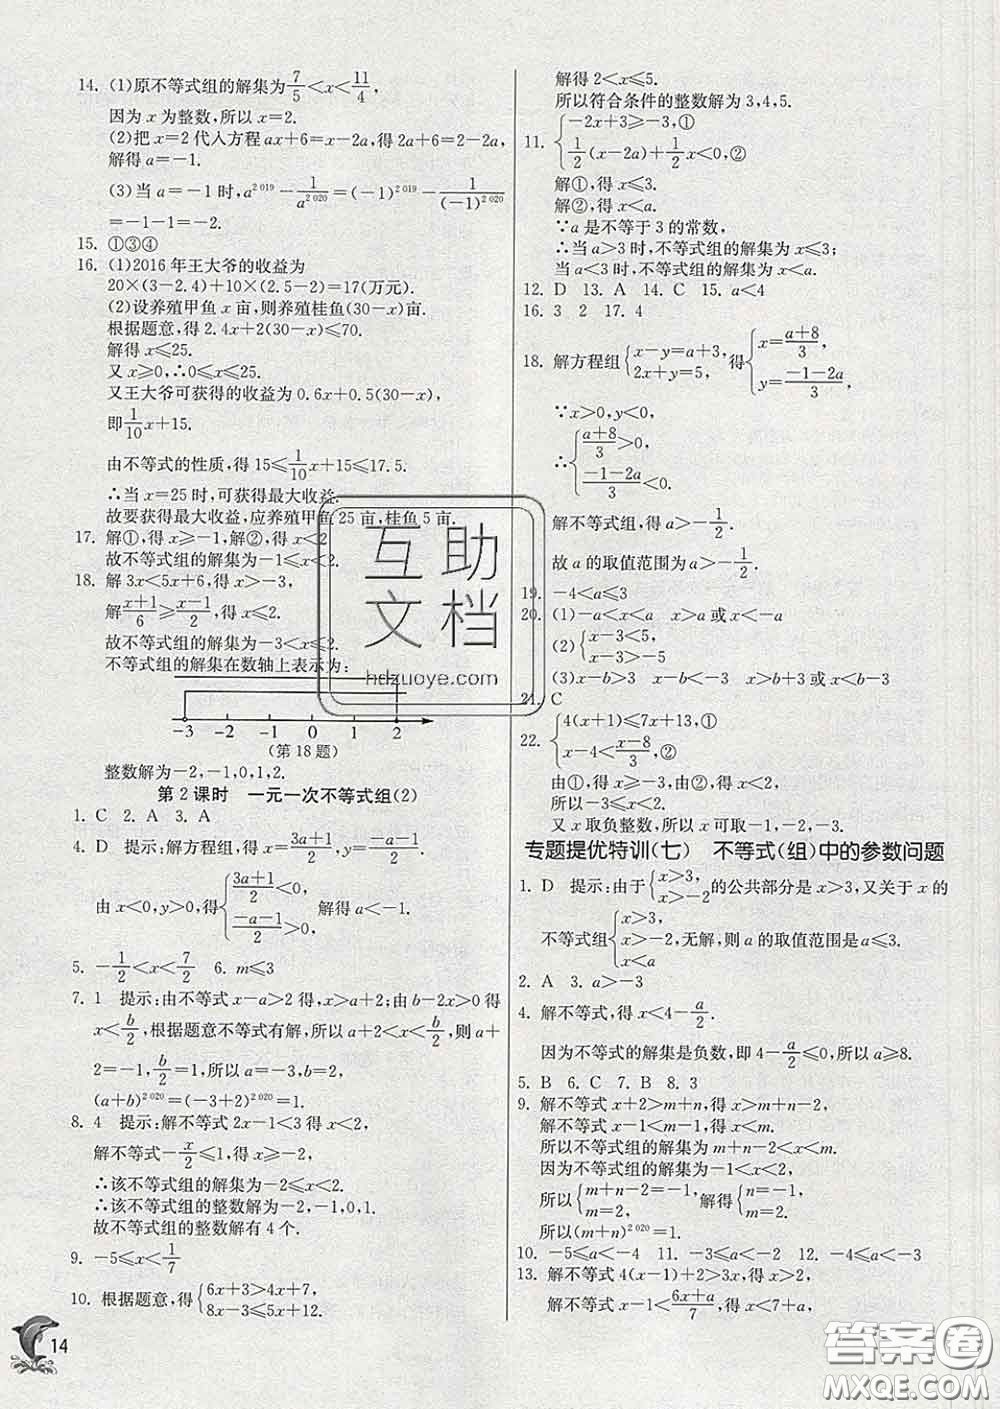 14. (1)原不等式组的解集为7/5<x<11/4,
因为 x 为整数,所以 x=2.
(2)把 x=2 代入方程 ax+6=x-2a,得 2a+6=2-2a,
解得 a=-1.
(3)当 a=-1 时,a²⁰¹⁹-1/a²⁰²⁰=(-1)²⁰¹⁹-1/(-1)²⁰²⁰
=-1-1=-2.
15. ①③④
16. (1)2016 年王大爷的收益为
20×(3-2.4)+10×(2.5-2)=17(万元).
(2)设养殖甲鱼 x 亩,则养殖桂鱼(30-x)亩.
根据题意,得 2.4x+2(30-x)≤70.
解得 x≤25.
又 x≥0,∴0≤x≤25.
又王大爷可获得的收益为 0.6x+0.5(30-x),
即1/10x+15.
由不等式的性质,得 15≤1/10x+15≤17.5.
∴当 x=25 时,可获得最大收益.
故要获得最大收益,应养殖甲鱼 25 亩,桂鱼 5 亩.
17. 解①,得 x≥-1,解②,得 x<2.
故不等式组的解集为-1≤x<2.
18. 解 3x<5x+6,得 x>-3,
解(x+1)/6≥(x-1)/2,得 x≤2.
故不等式组的解集为-3<x≤2.
不等式组的解集在数轴上表示为:
-3 -2 -1 0 1 2
(第 18 题)
整数解为-2,-1,0,1,2.
第 2 课时 一元一次不等式组(2)
1. C 2. A 3. A
4. D 提示:解方程组,得 x=(3a+1)/2,y=(-a-1)/2.
由 x<0,y>0,得{(3a+1)/2<0, (-a-1)/2>0. 解得 a<-1.
5. -1/2<x<7/2 6. m≤3
7. 1 提示:由不等式 x-a>2 得,x>a+2;由 b-2x>0 得
x<b/2,根据题意不等式有解,所以 a+2<x<b/2,则 a+
2=-1,b/2=1,所以 a=-3,b=2.
(a+b)²⁰²⁰=(-3+2)²⁰²⁰=1.
8. 4 提示:解不等式 2x-1<3 得 x<2,
解不等式-x/2≤1,得 x≥-2,
∴该不等式组的解集为-2≤x<2.
∴该不等式组的整数解为-2,-1,0,1.
故不等式组的整数解有 4 个.
9. -5≤x<1/7
10. 根据题意,得{6x+3>4x+7, 8x-3≤5x+12.
14
解得 2<x≤5.
所以符合条件的整数解为 3,4,5.
11. {-2x+3≥-3,① 1/2(x-2a)+1/2x<0,②
解①,得 x≤3.
解②,得 x<a.
∵a 是不等于 3 的常数,
∴当 a>3 时,不等式组的解集为 x≤3;
当 a<3 时,不等式组的解集为 x<a.
12. D 13. A 14. C 15. a<4
16. 3 2 17. 4
18. 解方程组{x-y=a+3, 2x+y=5, 得{x=(a+8)/3, y=(-1-2a)/3,
∵x>0,y<0,
∴{(a+8)/3>0, (-1-2a)/3<0.
解不等式组,得 a>-1/2.
故 a 的取值范围为 a>-1/2.
19. -4<a≤3
20. (1)-a<x<a x>a 或 x<-a
(2){x-3<5, x-3>-5
(3)x-b>3 x-b<-3 x>b+3 或 x<b-3
21. C
22. {4(x+1)≤7x+13,① x-4<(x-8)/3,②
由①,得 x≥-3,由②,得 x<2,
所以-3≤x<2.
又 x 取负整数,所以 x 可取-1,-2,-3.
专题提优特训(七) 不等式(组)中的参数问题
1. D 提示:由于{x>3, x>-2 的公共部分是 x>3,又关于 x 的
不等式组{x>3, x>-2, x<a 无解,则 a 的取值范围是 a≤3.
2. A 3. a>-3
4. 解不等式,得 x<4-a/2.
因为不等式的解集是负数,即 4-a/2≤0,所以 a≥8.
5. B 6. C 7. B 8. 3
9. 解不等式 x+2>m+n,得 x>m+n-2,
解不等式 x-1<m-1,得 x<m.
所以不等式组的解集为 m+n-2<x<m.
因为不等式组的解集为-1<x<2,
所以{m+n-2=-1, m=2, 解得{n=-1, m=2.
所以(m+n)²⁰²⁰=1.
10. -5≤a<-4 11. -3≤a<-2 12. -4≤a<-3
13. 解不等式 4(x-1)+2>3x,得 x>2,
解不等式 x-1<(6x+a)/7,得 x<7+a,
互助
文档
hdzuoye.com
答案圈
MXQE.COM